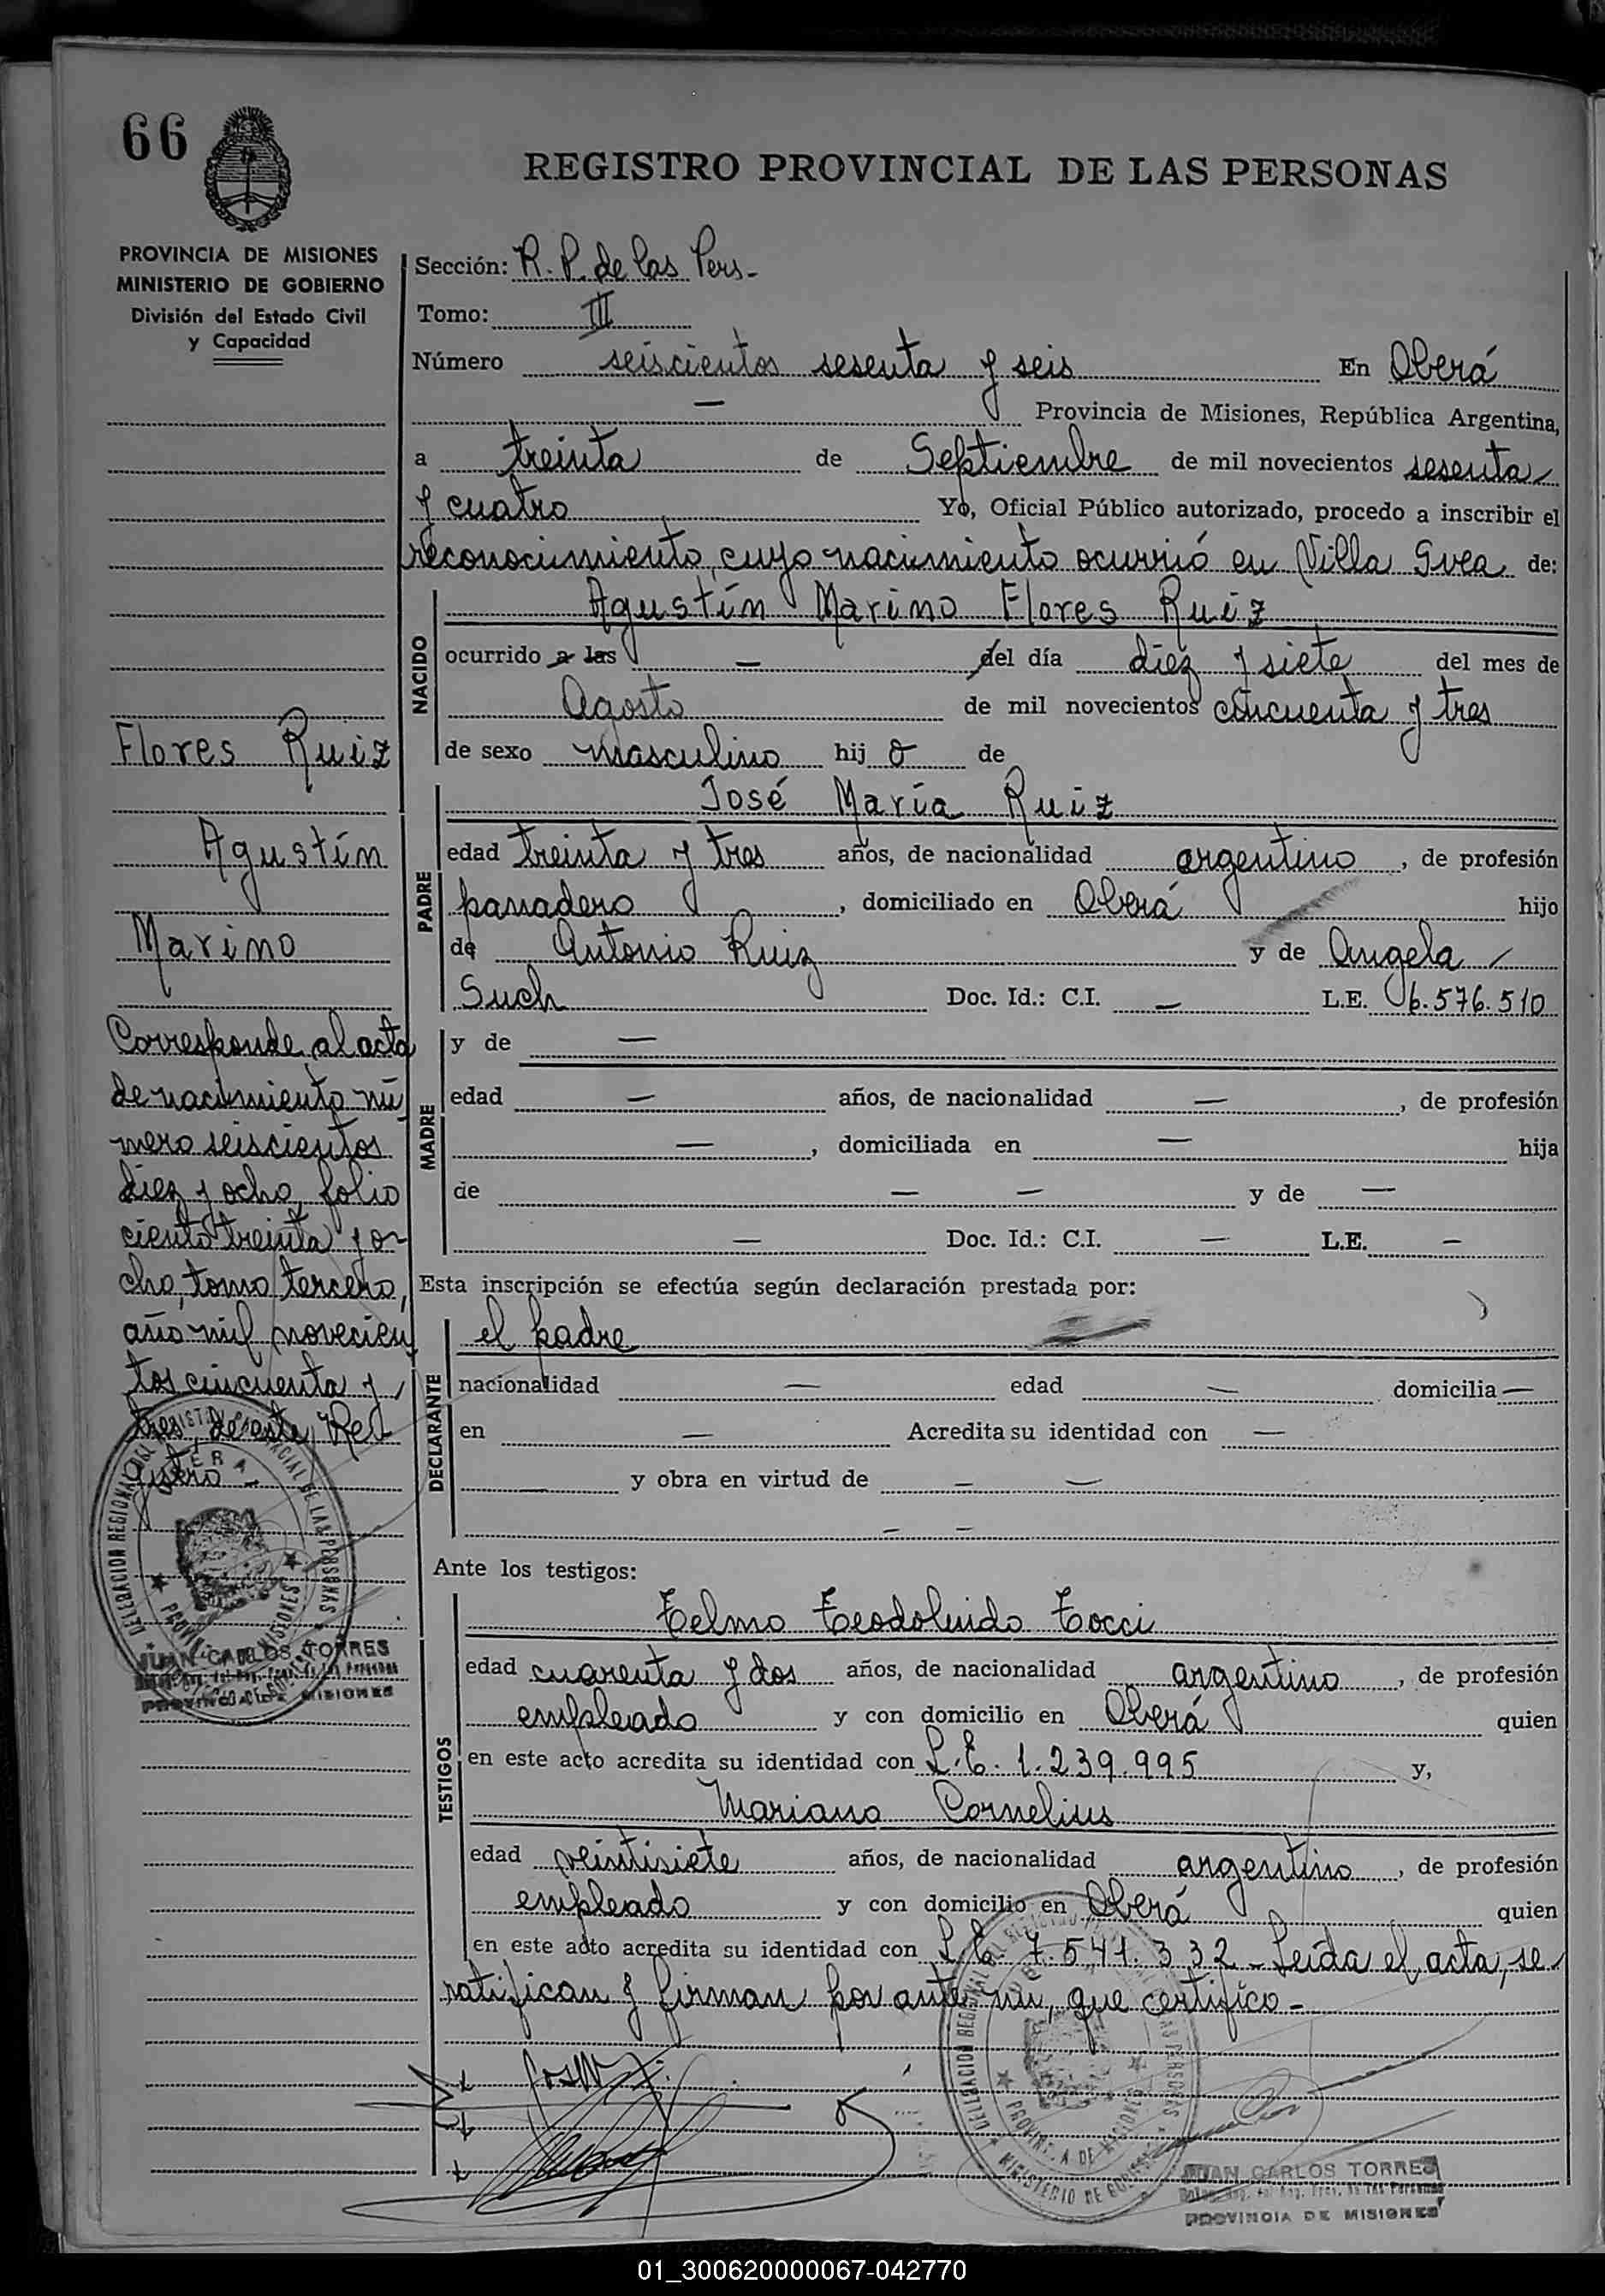 66
REGISTRO PROVINCIAL DE LAS PERSONAS
PROVINCIA DE MISIONES
MINISTERIO DE GOBIERNO
División del Estado Civil
y Capacidad
Sección: R. P. de las Pers-
Tomo: III
Número seiscientos sesenta y seis En Oberá
— Provincia de Misiones, República Argentina,
a treinta de Septiembre de mil novecientos sesenta
y cuatro Yo, Oficial Público autorizado, procedo a inscribir el
reconocimiento, cuyo nacimiento ocurrió en Villa Svea de:
NACIDO
Agustín Marino Flores Ruiz
ocurrido a las — del día diez y siete del mes de
Agosto de mil novecientos cincuenta y tres
de sexo masculino hijo de
PADRE
José María Ruiz
edad treinta y tres años, de nacionalidad argentino, de profesión
panadero, domiciliado en Oberá hijo
de Antonio Ruiz y de Angela
Such Doc. Id.: C.I. — L.E. 6.576.510
MADRE
y de —
edad — años, de nacionalidad —, de profesión
—, domiciliada en — hija
de — — y de —
— Doc. Id.: C.I. — L.E. —
Esta inscripción se efectúa según declaración prestada por:
DECLARANTE
el padre
nacionalidad — edad — domicilia —
en — Acredita su identidad con —
— y obra en virtud de — —
— —
Ante los testigos:
TESTIGOS
Telmo Teodolindo Tocci
edad cuarenta y dos años, de nacionalidad argentino, de profesión
empleado y con domicilio en Oberá quien
en este acto acredita su identidad con L.E. 1.239.995 y,
Mariano Cornelius
edad veintisiete años, de nacionalidad argentino, de profesión
empleado y con domicilio en Oberá quien
en este acto acredita su identidad con L.E. 7.541.332 - Leída el acta, se
ratifican y firman por ante mi, que certifico-
Flores Ruiz
Agustín
Marino
Corresponde al acta
de nacimiento nú
mero seiscientos
diez y ocho, folio
ciento treinta y o-
cho, tomo tercero,
año mil novecien
tos cincuenta y
tres, de este Re
gistro -
JUAN CARLOS TORRES
PROVINCIA DE MISIONES
JUAN CARLOS TORRES
PROVINCIA DE MISIONES
01_300620000067-042770